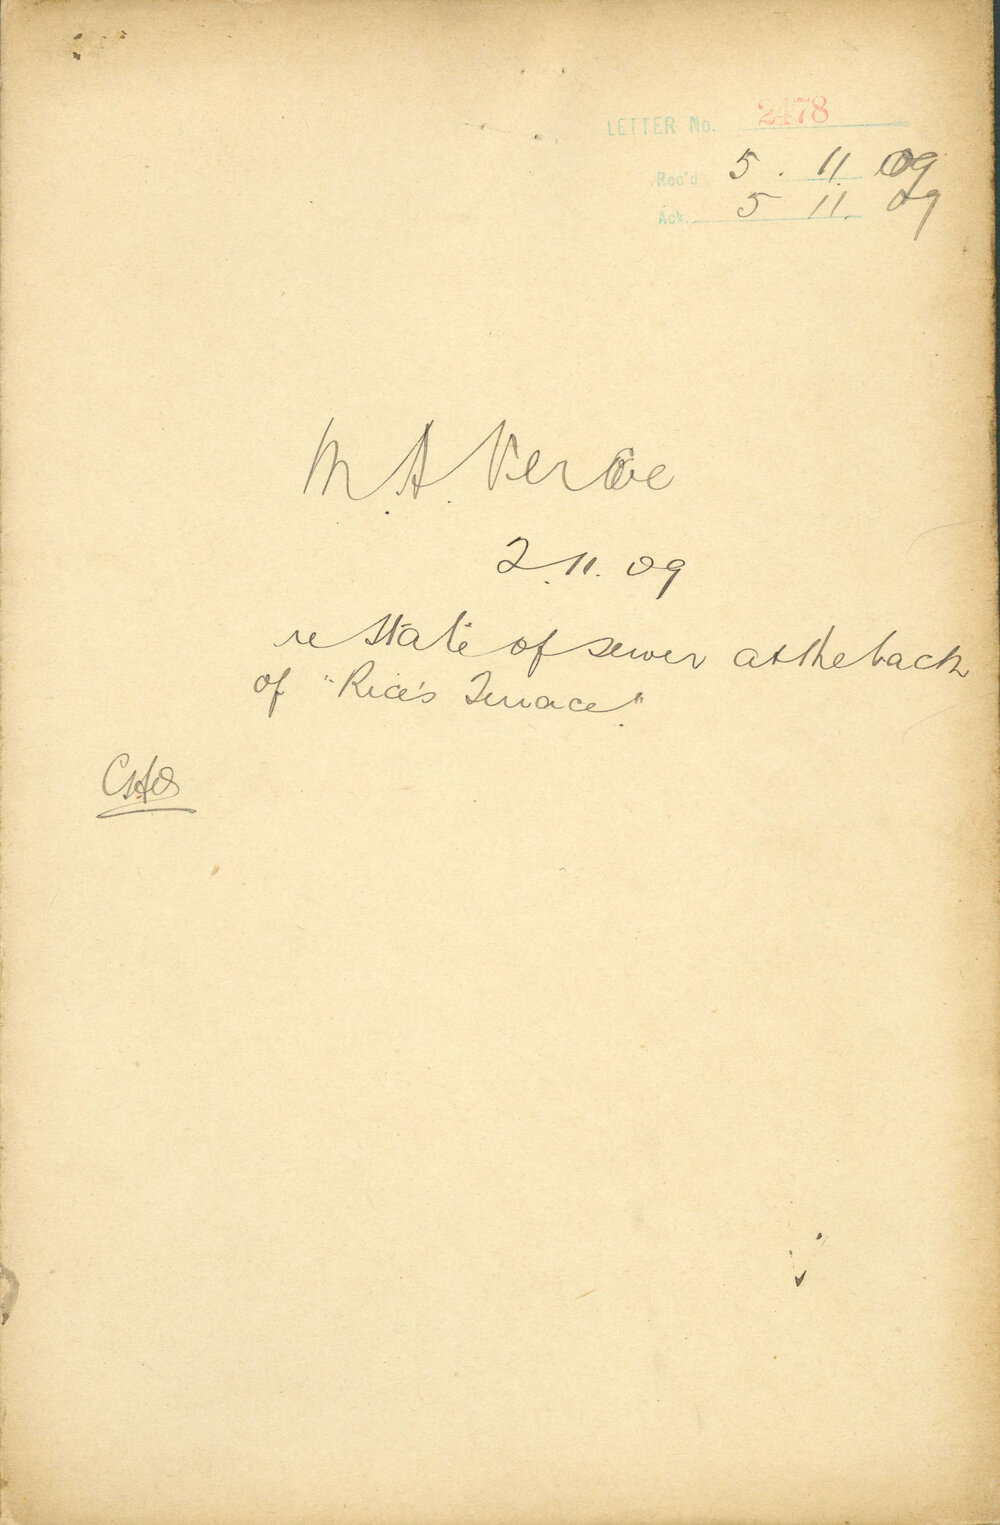 LETTER No. 2478
Rec'd 5. 11. 09
Ack. 5 11. 09
M. A. Verco
2. 11. 09
re State of sewer at the back
of "Rice's Terrace".